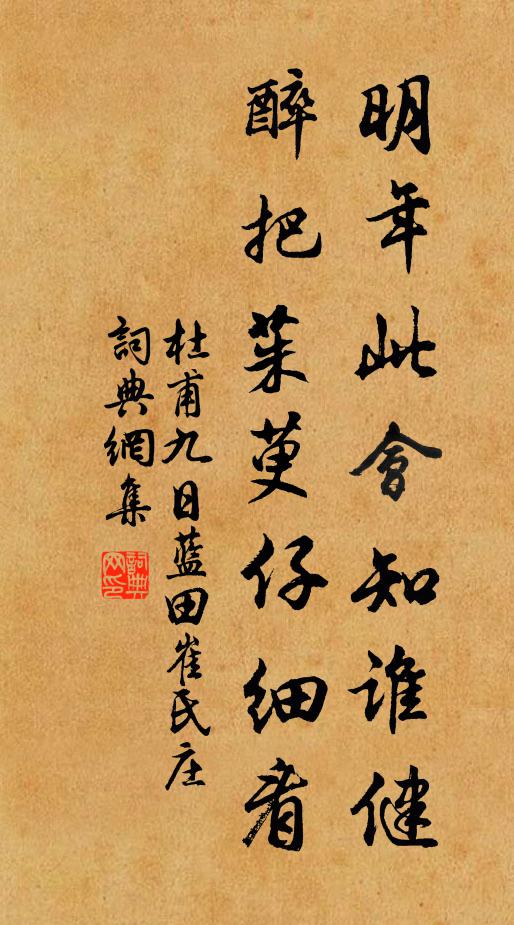 明年此會知誰健
醉把茱萸仔細看
杜甫九日藍田崔氏庄
詞典網集
詞典网印